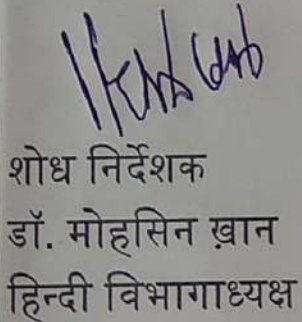 शोध निर्देशक
डॉ. मोहसिन ख़ान
हिन्दी विभागाध्यक्ष